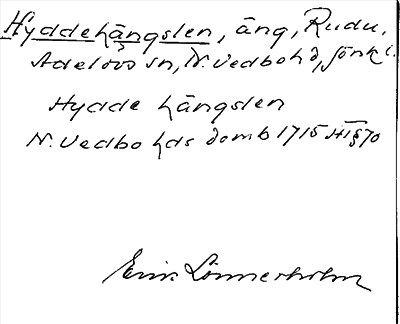 Hyddehängslen, äng, Rudu,
Adelövs sn, N. Vedbo hd, Jönk l.
Hydde hängslen
N. Vedbo hds domb 1715 HT § 70
Erik Lönnerholm